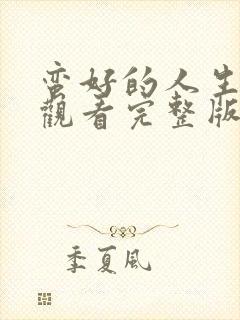 蛮好的人生
觀看完整版
季夏风